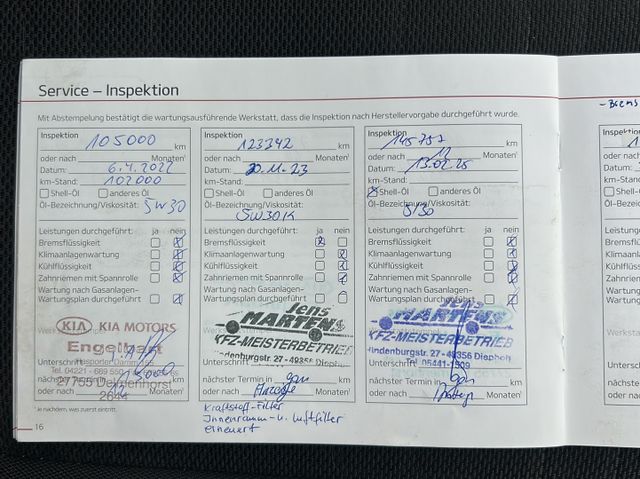 Service – Inspektion
Mit Abstempelung bestätigt die wartungsausführende Werkstatt, dass die Inspektion nach Herstellervorgabe durchgeführt wurde.
Inspektion
105000 km
oder nach Monaten¹
Datum: 6.4.2022
km-Stand: 102000
Shell-Öl anderes Öl
Öl-Bezeichnung/Viskosität:
5W30
Leistungen durchgeführt: ja nein
Bremsflüssigkeit
Klimaanlagenwartung
Kühlflüssigkeit
Zahnriemen mit Spannrolle
Wartung nach Gasanlagen-
Wartungsplan durchgeführt
KIA KIA MOTORS
Engelbart
Tel. 04221 - 689 550
27755 Delmenhorst
Unterschrift
nächster Termin in km
oder nach 12 Monaten¹
¹ Je nachdem, was zuerst eintritt.
16
Inspektion
123342 km
oder nach Monaten¹
Datum: 20.11.23
km-Stand:
Shell-Öl anderes Öl
Öl-Bezeichnung/Viskosität:
5W30K
Leistungen durchgeführt: ja nein
Bremsflüssigkeit
Klimaanlagenwartung
Kühlflüssigkeit
Zahnriemen mit Spannrolle
Wartung nach Gasanlagen-
Wartungsplan durchgeführt
Jens
MARTENS
KFZ-MEISTERBETRIEB
Hindenburgstr. 27 - 49356
Unterschrift
nächster Termin in km
oder nach Anzeige Monaten¹
Kraftstoff-Filter
Innenraum- u. Luftfilter
erneuert
Inspektion
145757 km
oder nach Monaten¹
Datum: 13.02.25
km-Stand:
Shell-Öl anderes Öl
Öl-Bezeichnung/Viskosität:
5/30
Leistungen durchgeführt: ja nein
Bremsflüssigkeit
Klimaanlagenwartung
Kühlflüssigkeit
Zahnriemen mit Spannrolle
Wartung nach Gasanlagen-
Wartungsplan durchgeführt
Jens
MARTENS
KFZ-MEISTERBETRIEB
Hindenburgstr. 27 - 49356 Diepholz
Tel. 05441-1809
Unterschrift
nächster Termin in km
oder nach Monaten¹